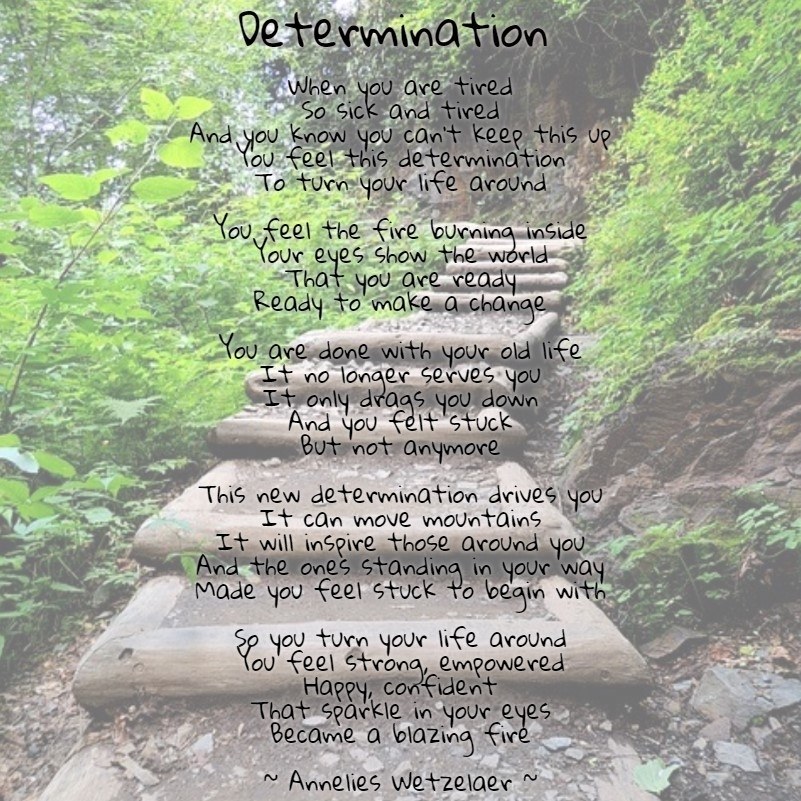 Determination
When you are tired
So sick and tired
And you know you can't keep this up
You feel this determination
To turn your life around
You feel the fire burning inside
Your eyes show the world
That you are ready
Ready to make a change
You are done with your old life
It no longer serves you
It only drags you down
And you felt stuck
But not anymore
This new determination drives you
It can move mountains
It will inspire those around you
And the ones standing in your way
Made you feel stuck to begin with
So you turn your life around
You feel strong, empowered
Happy, confident
That sparkle in your eyes
Became a blazing fire
~ Annelies Wetzelaer ~